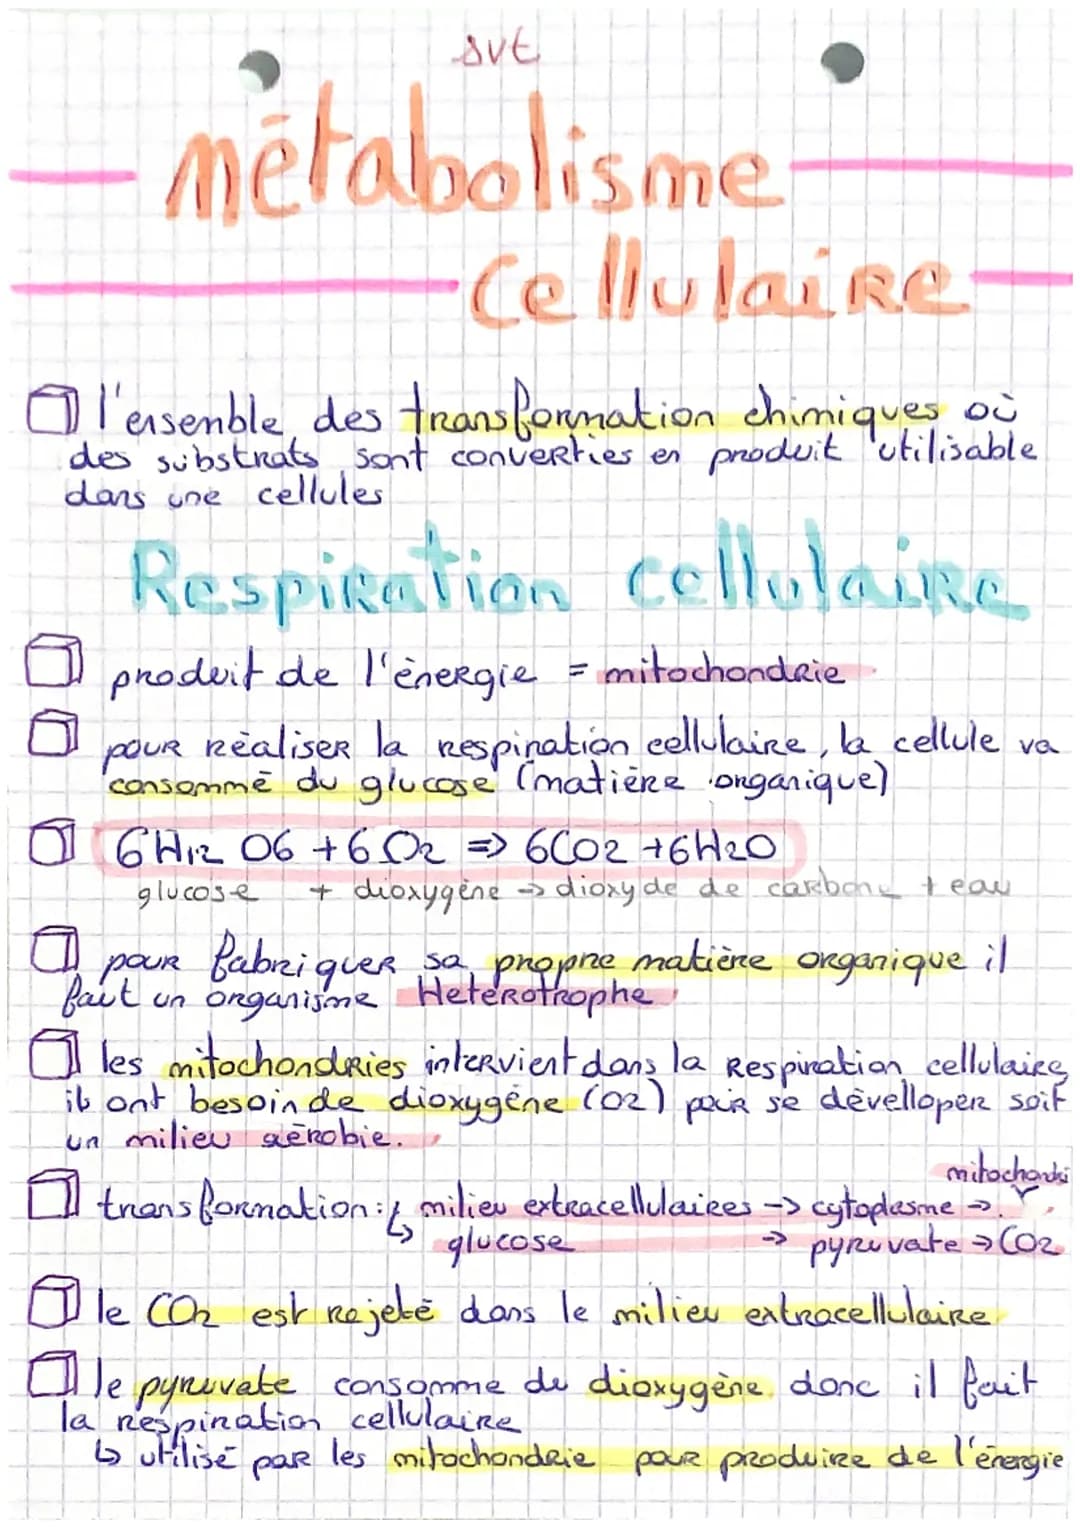 svt
métabolisme
Cellulaire
l'ensemble des transformation chimiques où
des substrats sont converties en produit utilisable
dans une cellules
Respiration cellulaire
produit de l'énergie = mitochondrie
pour réaliser la respiration cellulaire, la cellule va
consommé du glucose (matière organique)
6H12 O6 + 6O2 => 6CO2 + 6H2O
glucose + dioxygène → dioxyde de carbone + eau
pour fabriquer sa propre matière organique il
fait un organisme Hétérotrophe
les mitochondries intervient dans la Respiration cellulaire,
ils ont besoin de dioxygène (O2) pour se dévelloper soit
un milieu aérobie.
mitochondri
transformation : ↳ milieu extracellulaires -> cytoplasme ->
glucose -> pyruvate → CO2
le CO2 est rejeté dans le milieu extracellulaire
le pyruvate consomme du dioxygène donc il fait
la respiration cellulaire
↳ utilisé par les mitochondrie pour produire de l'énergie